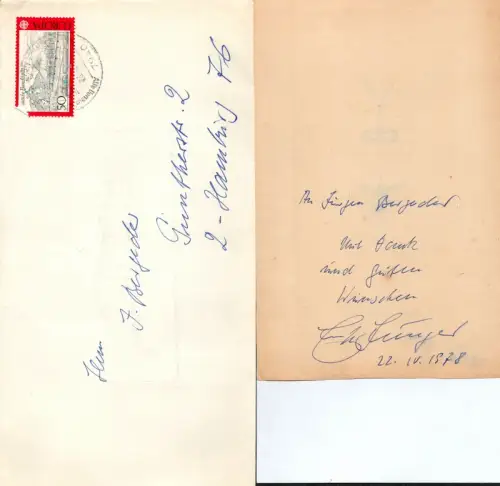 50
Herrn
J. Bergeder
Güntherstr. 2
2 - Hamburg 76
An Jürgen Bergeder
Mit Dank
und guten
Wünschen
Ernst Jünger
22. IV. 1978